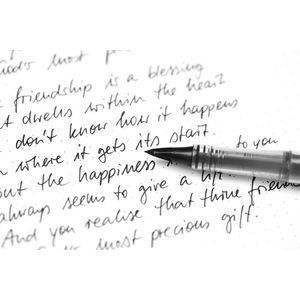 God's most
friendship is a blessing
t dwells within the heart
don't know how it happens
where it gets its start.
ut the happiness to you
always seems to give a lift.
And you realise that
most precious gift.